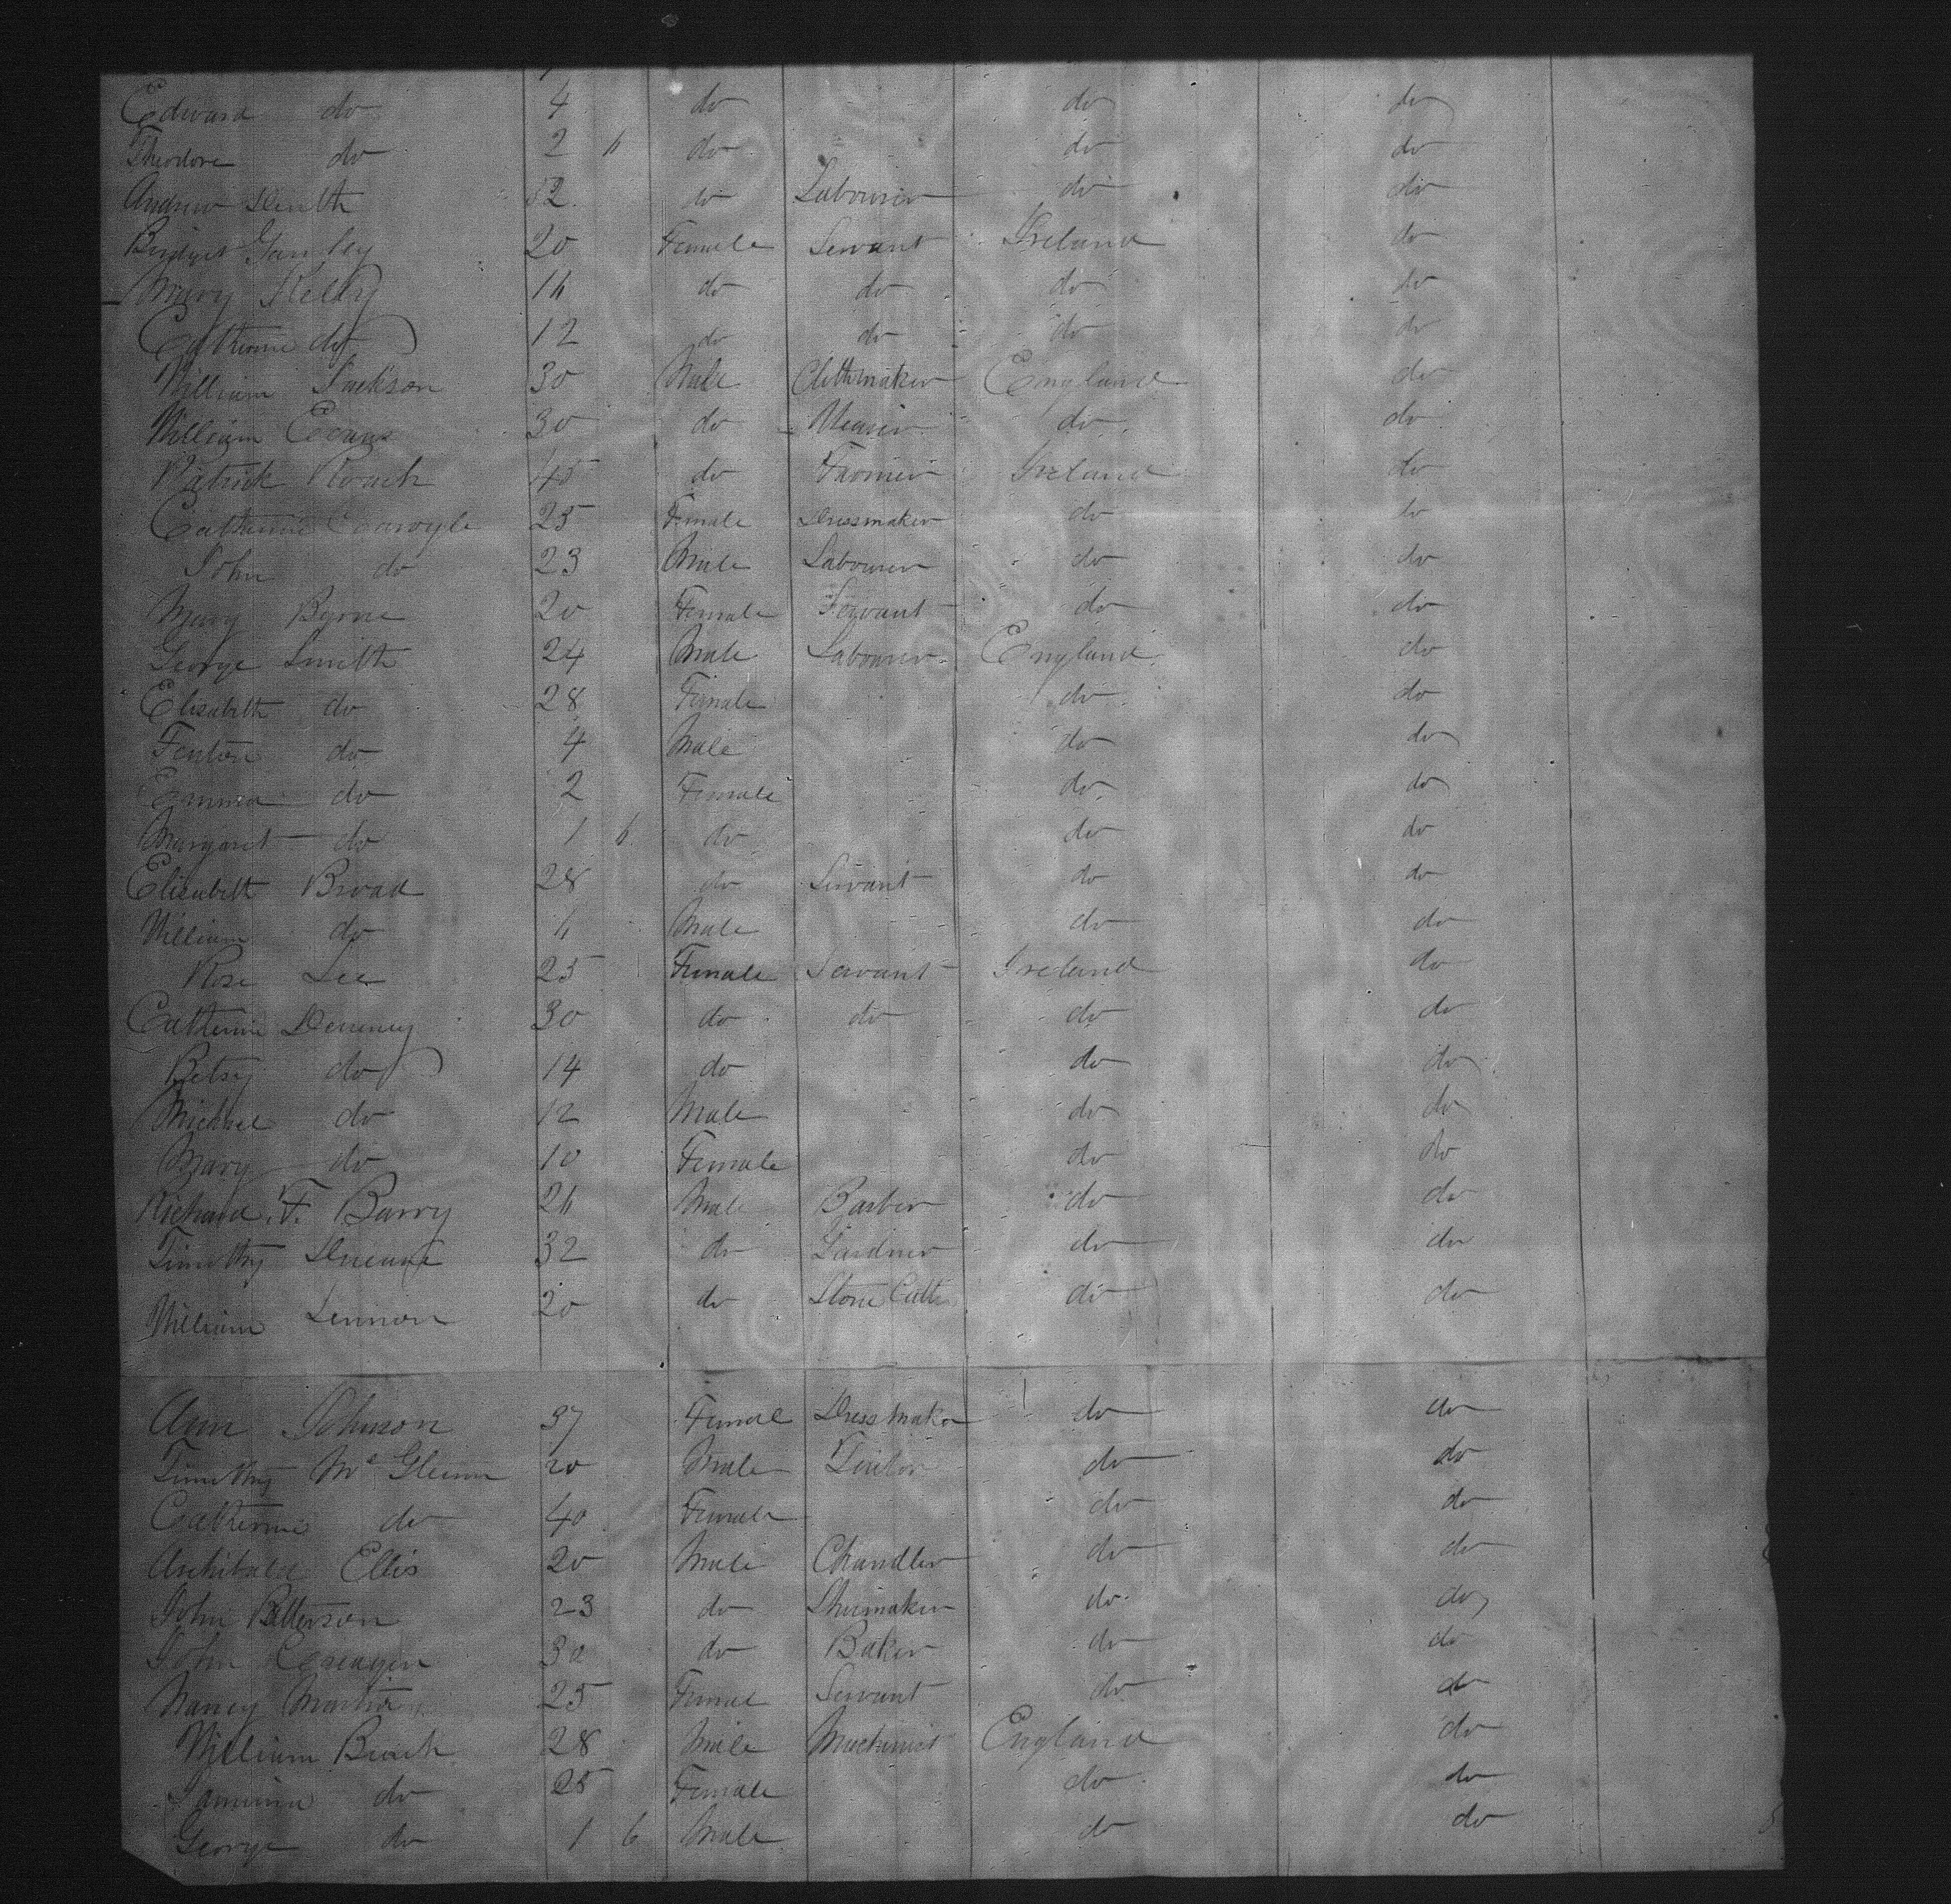 Edward do 4 do do do
Theodore do 2 6 do do do
Andrew 52 do Labourer do do
Bridget 20 Female Servant Ireland do
Mary Kelly 16 do do do do
Catherine do 12 do do do do
William Jackson 30 Male Clothmaker England do
William Evans 30 do Weaver do do
Patrick Roach 45 do Farmer Ireland do
Catherine 25 Female Dressmaker do do
John do 23 Male Labourer do do
Mary Byrne 20 Female Servant do do
George Smith 24 Male Labourer England do
Elisabeth do 28 Female do do
Fenton do 4 Male do do
Emma do 2 Female do do
Margaret do 1 6 do do do
Elisabeth Broad 28 do Servant do do
William do 6 Male do do
Rose Lee 25 Female Servant Ireland do
Catherine 30 do do do do
Betsy do 14 do do do
Michael do 12 Male do do
Mary do 10 Female do do
Richard F. Barry 26 Male Barber do do
Timothy 32 do Gardner do do
William Lennon 20 do Stone Cutter do do
Ann Johnson 37 Female Dressmaker do do
Timothy Mc Glenn 20 Male Tailor do do
Catherine do 40 Female do do
Archibald Ellis 20 Male Chandler do do
John Patterson 23 do Shoemaker do do
John 30 do Baker do do
Nancy Martin 25 Female Servant do do
William 28 Male Machinist England do
Jamima do 25 Female do do
George do 1 6 Male do do